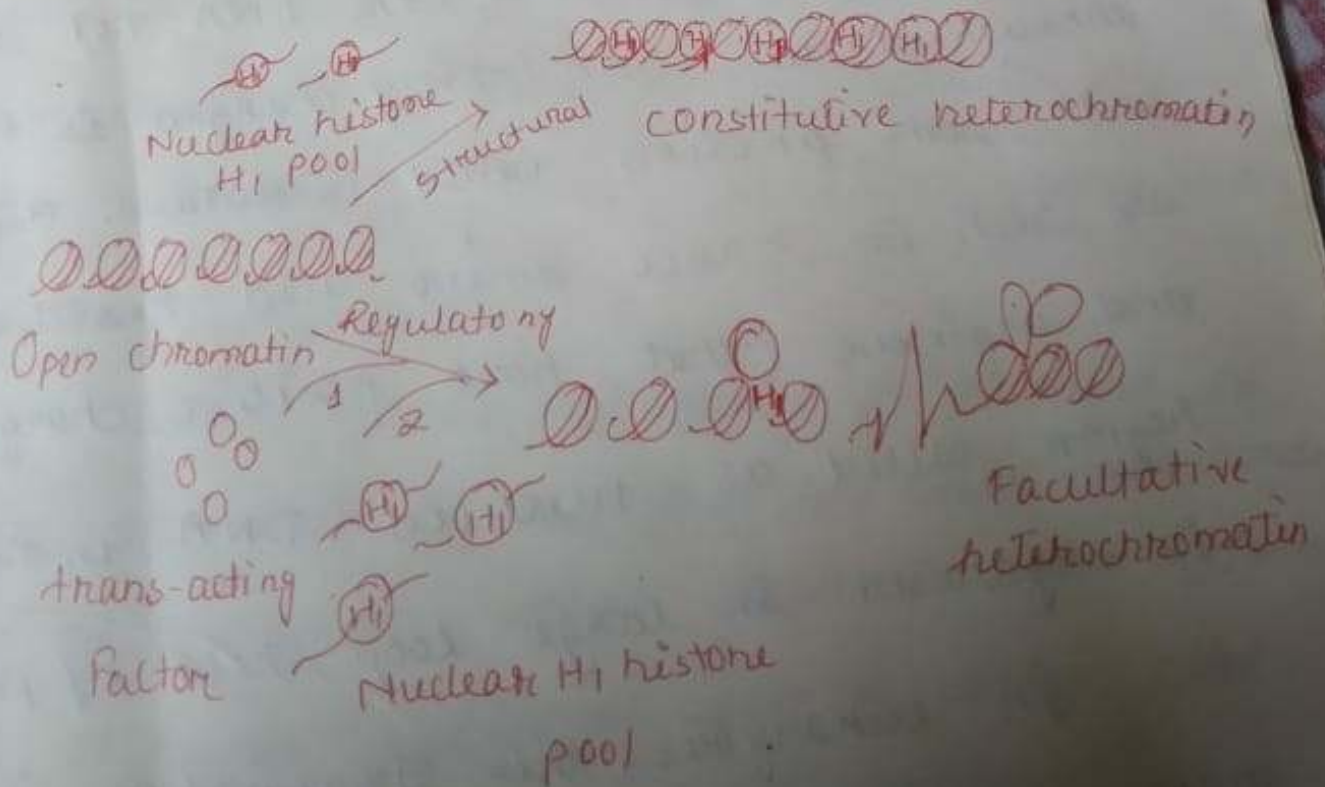 H1 H1
H1 H1 H1 H1 H1
Nuclear histone
H1 pool
structural
constitutive heterochromatin
Open chromatin
Regulatory
1
2
H1
H1 H1
H1
trans-acting
factor
Nuclear H1 histone
pool
Facultative
heterochromatin